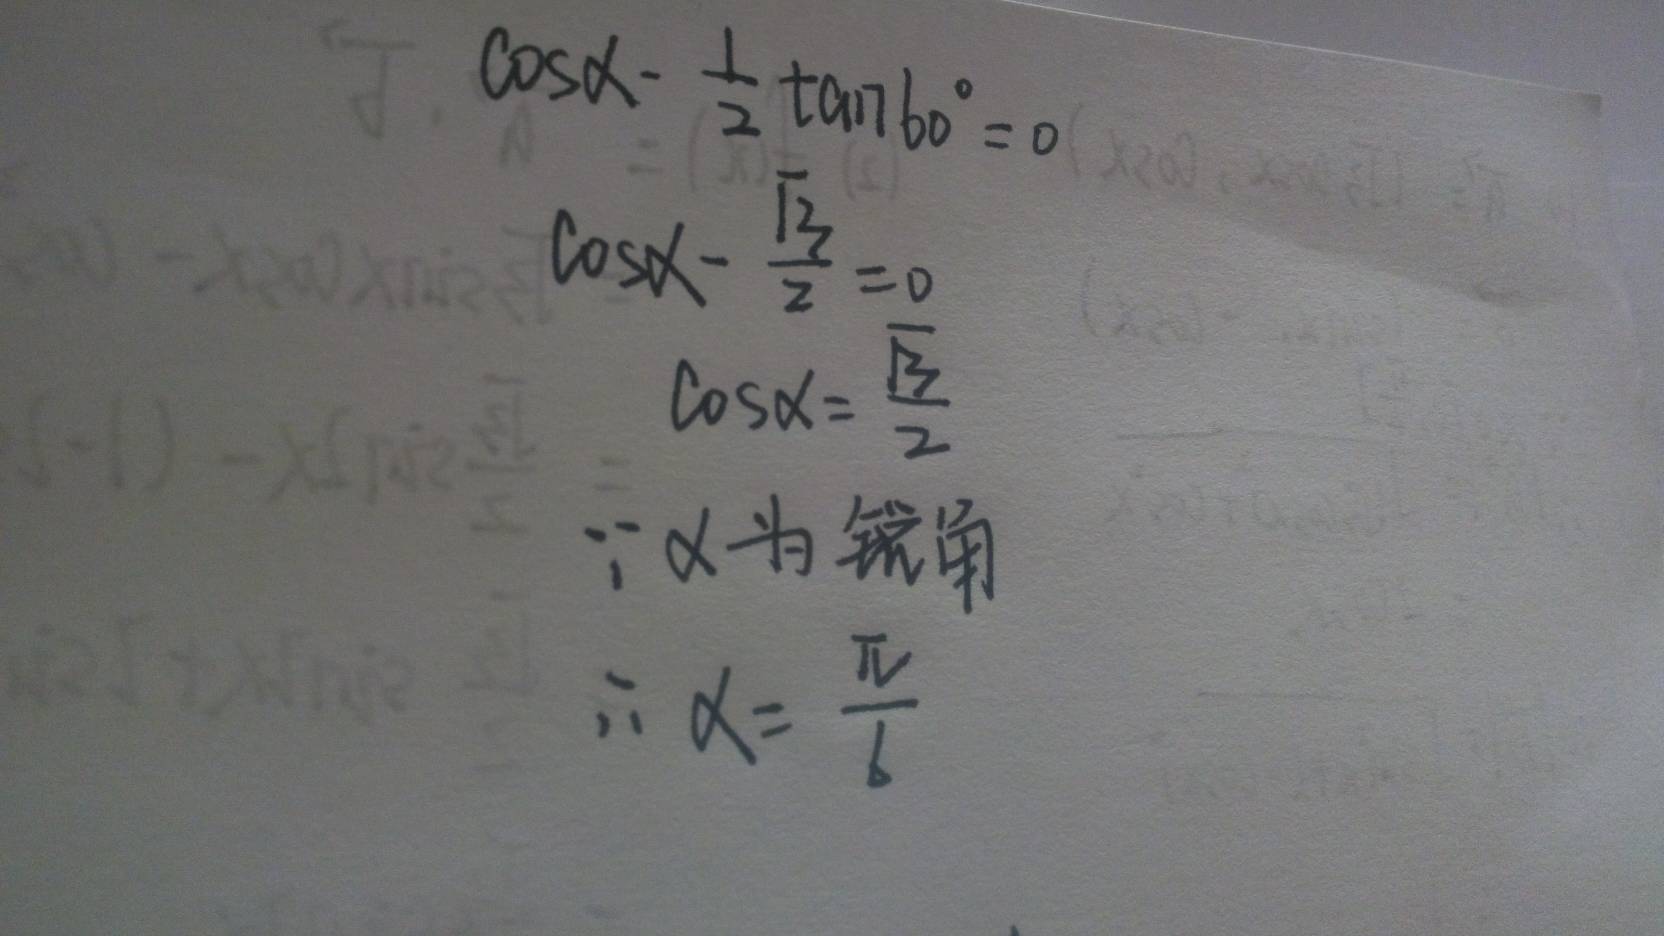 cosα - 1/2 tan60° = 0
cosα - √3/2 = 0
cosα = √3/2
∵ α为锐角
∴ α = π/6